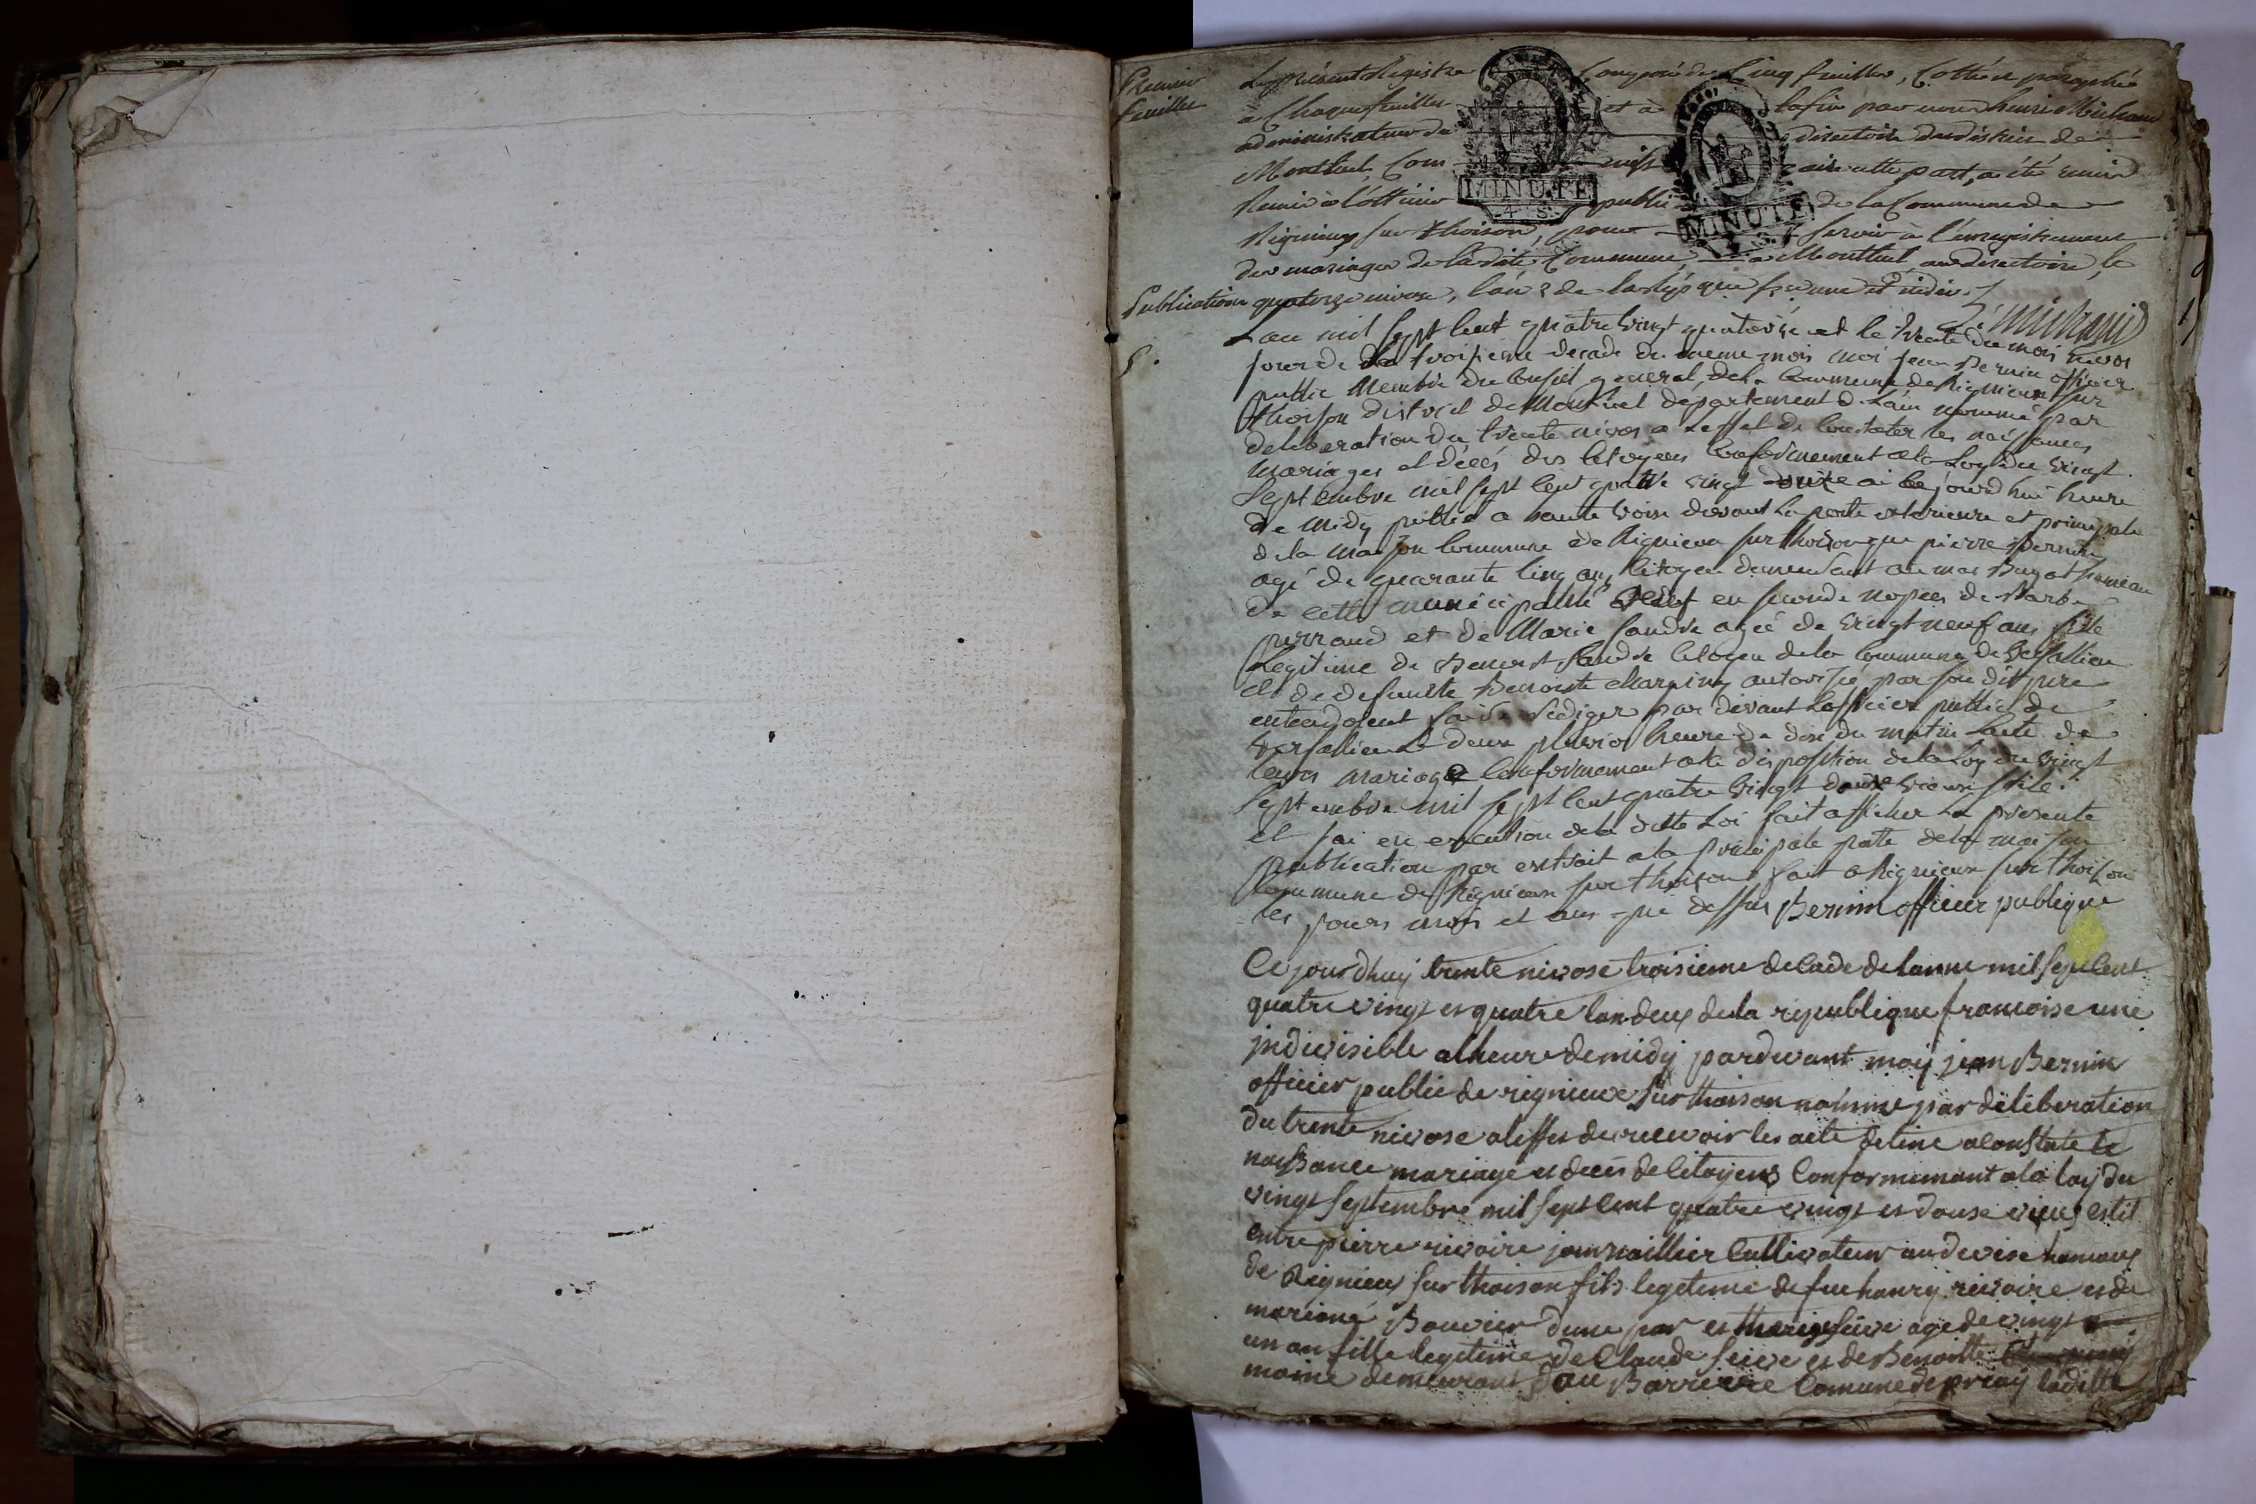 Premier
feuillet
Le présent Régistre Composé de Cinq feuillets, Cotté et paraphé
a Chaque feuillet et a la fin par nous henri Michaud
administrateur du directoire du district de
Montluel Com aire cette part, a été
Remis à l'officier public de la Commune de
Rignieux sur thoison, pour servir à l'enregistrement
des mariages de la dite Commune a Montluel, au directoire, le
Publication
quatorze nivose, l'an 2 de la Rép que française et indiv.
Michaud
MINUTE
4. S.
MINUTE
4. S.
Lan mil sept Cent quatre vingt quatorze et le trente du mois nivos
jour de la troisieme decade du meme mois moi jean Bernin officier
public membre du Conseil general de la Commune de Rignieux sur
thoison district de Montluel departement de Lain nommé par
deliberation du trente nivos a Leffet de Constater les naissances
mariages et décés des Citoyens Conformement a la Loy du vingt
septembre mil sept Cent quatre vingt douze ai Cejourdhui heure
de midy publié a haute voix devant La porte exterieure et principale
de la maison Commune de Rignieux sur thoison que pierre Bernin
agé de quarante Cinq ans Citoyen demeurant au mas hameau
de cette municipalité en seconde nopces de Barbe
perraud et de Marie fandre agée de vingt neuf ans fille
Legitime de Benoist fandre Citoyen de la Commune de Versallieu
et de defunte Benoiste autorisée par son dit pere
entendoient faire rediger par devant Lofficier public de
Versallieu Le deux pluvios heure de dix du matin Lacte de
leurs mariage Conformement a la disposition de la Loy du vingt
septembre mil sept Cent quatre vingt douze vieux stile.
et jai en execution de la ditte Loi fait afficher La presente
publication par extrait a la principale porte de la maison
Commune de Rignieux sur thoison fait a Rignieux sur thoison
les jours mois et ans que dessus Bernin officier publique
Ce jourdhuy trente nivose troisieme decade de lanne mil sept Cent
quatre vingt et quatre lan deux de la republique francoise une
jndivisible a lheure de midy pardevant moy jean Bernin
officier public de rignieux sur thoison nomme par deliberation
du trente nivose a leffet de recevoir les acte detine a Constate le
naissance mariage et deces de Citoyens Conformemant a la loy du
vingt septembre mil sept Cent quatre vingt et douse vieux estil
entre pierre rivoire journaillier Cultivateur au devise hamaux
de Rignieux sur thoison fils legetime de feu hanry rivoire et de
marianne Bouvier dune par et marie seive age de vingt
un an fille legetime de Claude seive et de Benoitte
moine demeurant au Barriere Comune de priay ladille